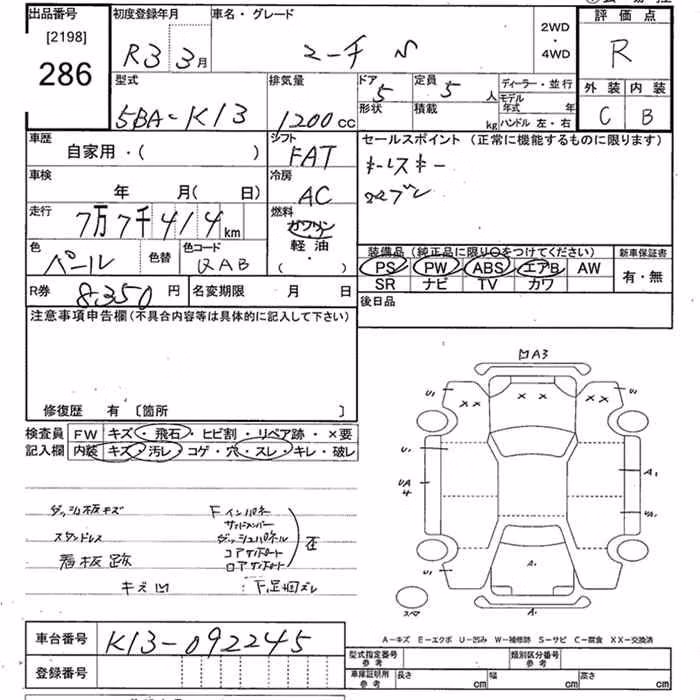 出品番号 初度登録年月 車名・グレード 2WD・4WD 評価点
[2198]
286
R3 3月 マーチ R
型式 排気量 ドア 定員 ディーラー・並行 外装 内装
5BA-K13 1200cc 5 5人 モデル年式 年 C B
形状 積載 kg ハンドル 左・右
車歴 シフト セールスポイント (正常に機能するものに限ります)
自家用・( ) FAT キーレスキー
車検 冷房
年 月( 日) AC
走行 燃料
7万7千414km ガソリン
軽油
・
( )
色 色替 色コード 装備品 (純正品に限り○をつけてください) 新車保証書
パール QAB PS PW ABS エアB AW 有・無
SR ナビ TV カワ
R券 8,350円 名変期限 月 日 後日品
注意事項申告欄(不具合内容等は具体的に記入して下さい)
修復歴 有 〔箇所 〕
検査員 FW キズ・飛石・ヒビ割・リペア跡・×要
記入欄 内装 キズ・汚レ・コゲ・穴・スレ・キレ・破レ
ダッシュ板キズ Fインパネ
サイドメンバー
スタンドレス ダッシュパネル
看板跡 コアサポート
ロアサポート
キズ凹
A3
U1
U1
XX
X X
XX
U1
A1
UA4
U1
A1
A1
スペア
A-キズ E-エクボ U-凹み W-補修跡 S-サビ C-腐食 XX-交換済
車台番号 K13-092245
登録番号
型式指定番号 参考 類別区分番号 参考
車庫証明用 参考 長さ cm 幅 cm 高さ cm